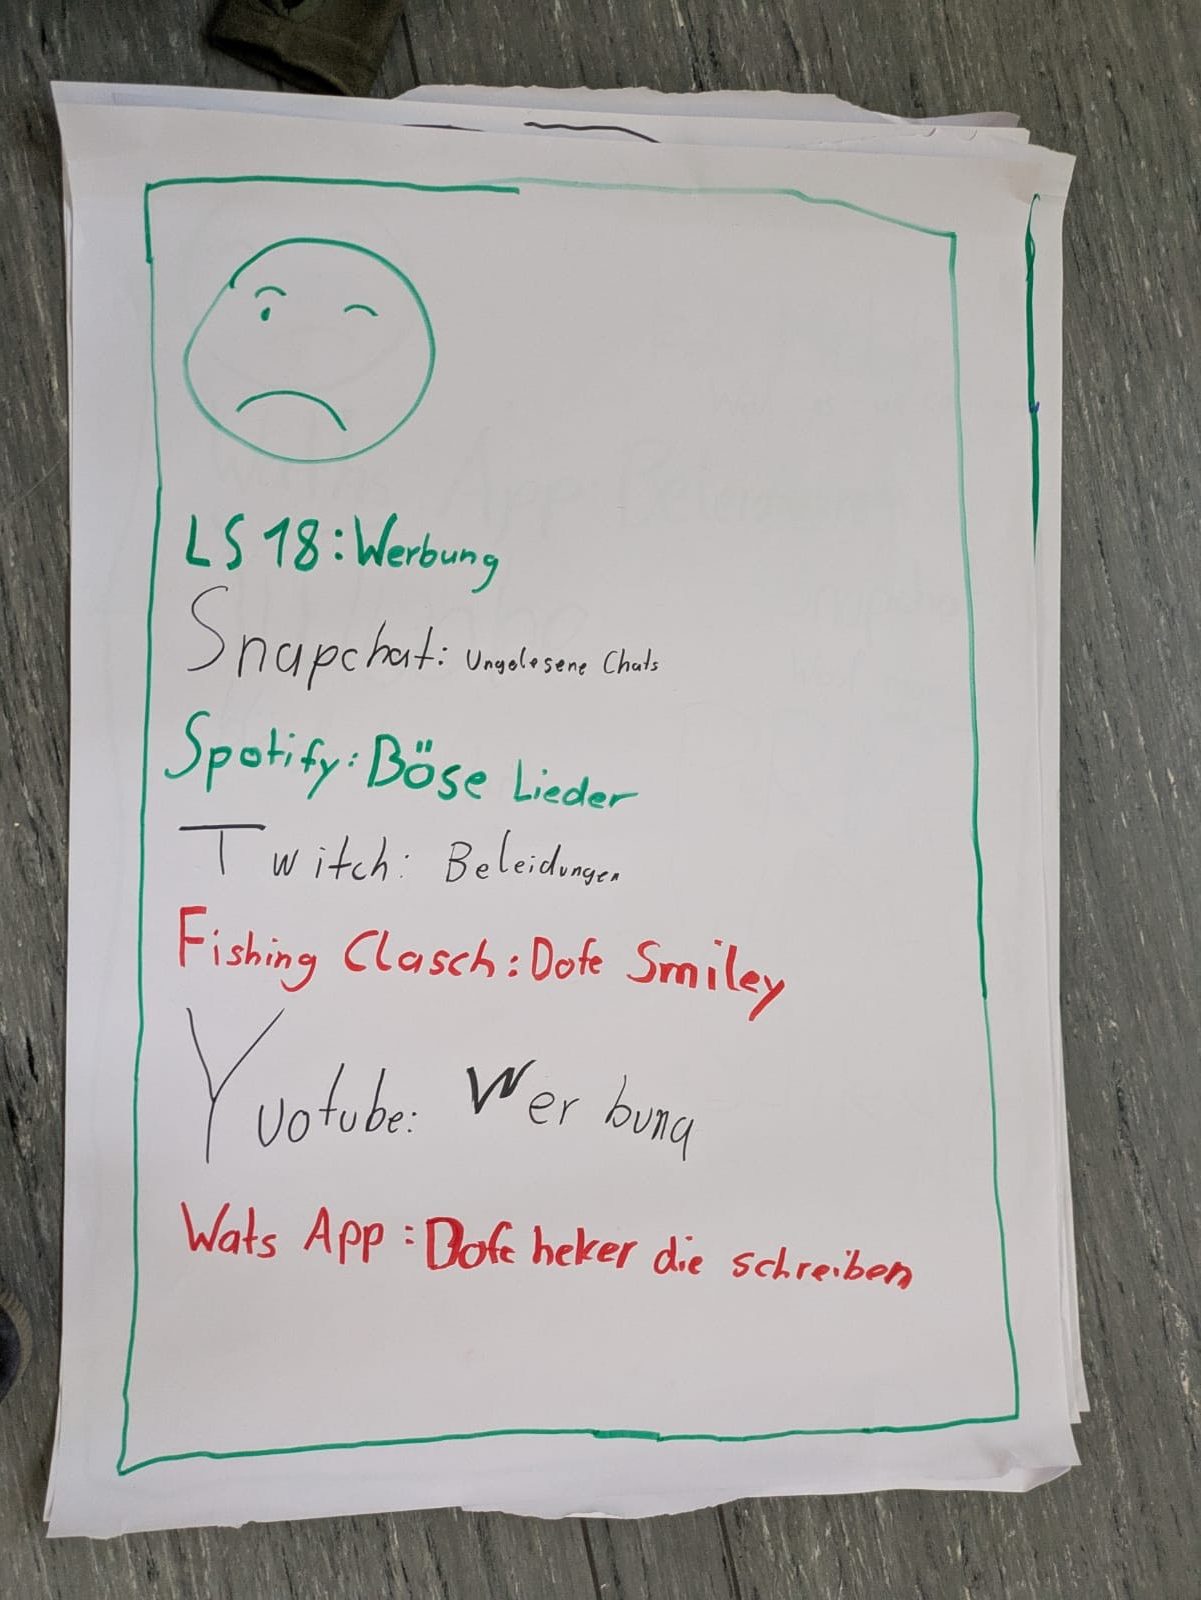 LS 18: Werbung
Snapchat: Ungelesene Chats
Spotify: Böse Lieder
Twitch: Beleidungen
Fishing Clasch: Dofe Smiley
Yuotube: Werbung
Wats App: Dofe heker die schreiben